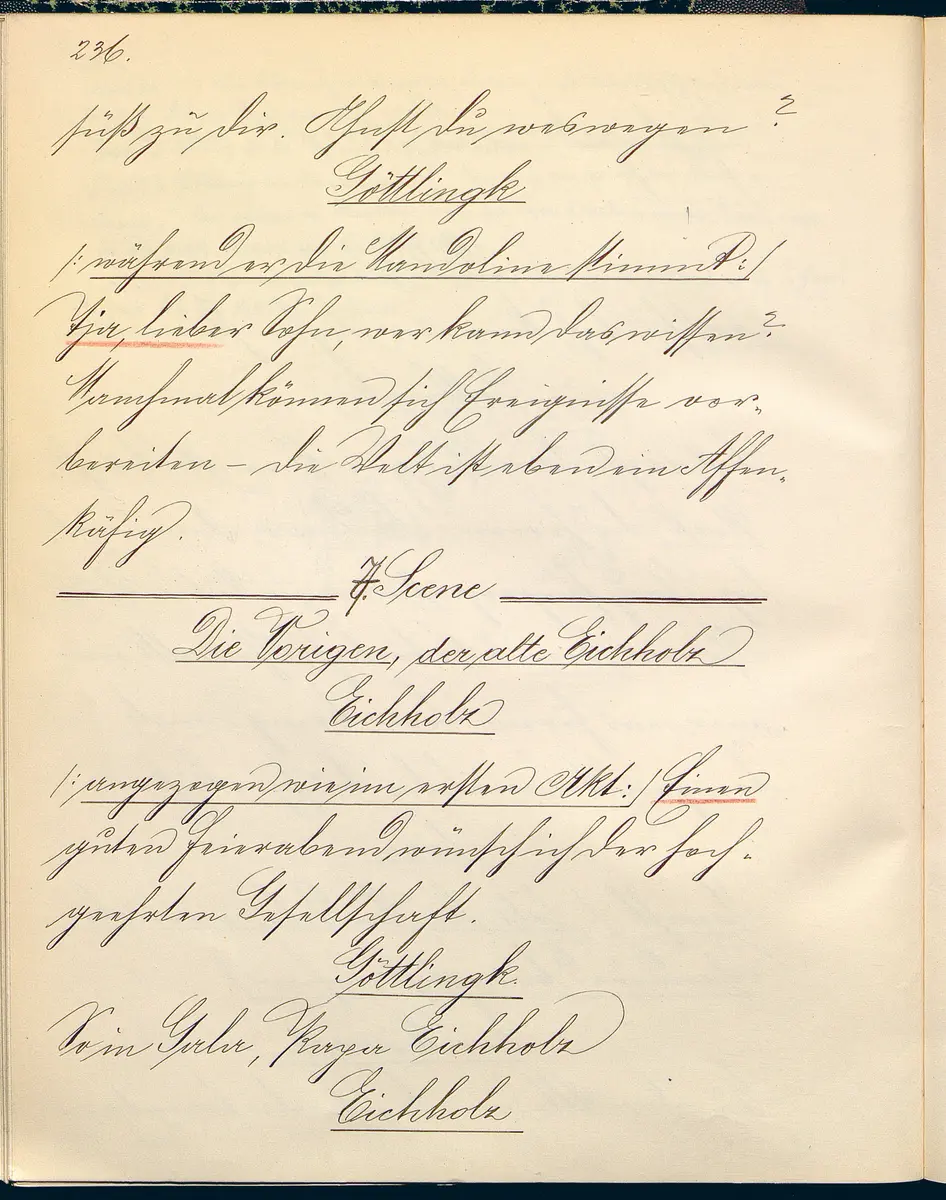 236.
süß zu dir. Ahnst du, weswegen?
Göttlingk
/: während er die Mandoline stimmt: /
Tja, lieber Sohn, wer kann das wissen?
Manchmal können sich Ereignisse vor-
bereiten – die Welt ist eben ein Affen-
käfig.
7. Scene
Die Vorigen, der alte Eichholz
Eichholz
/: angezogen wie im ersten Akt: / Einen
guten Feierabend wünsch ich der hoch-
geehrten Gesellschaft.
Göttlingk.
So in Gala, Papa Eichholz
Eichholz